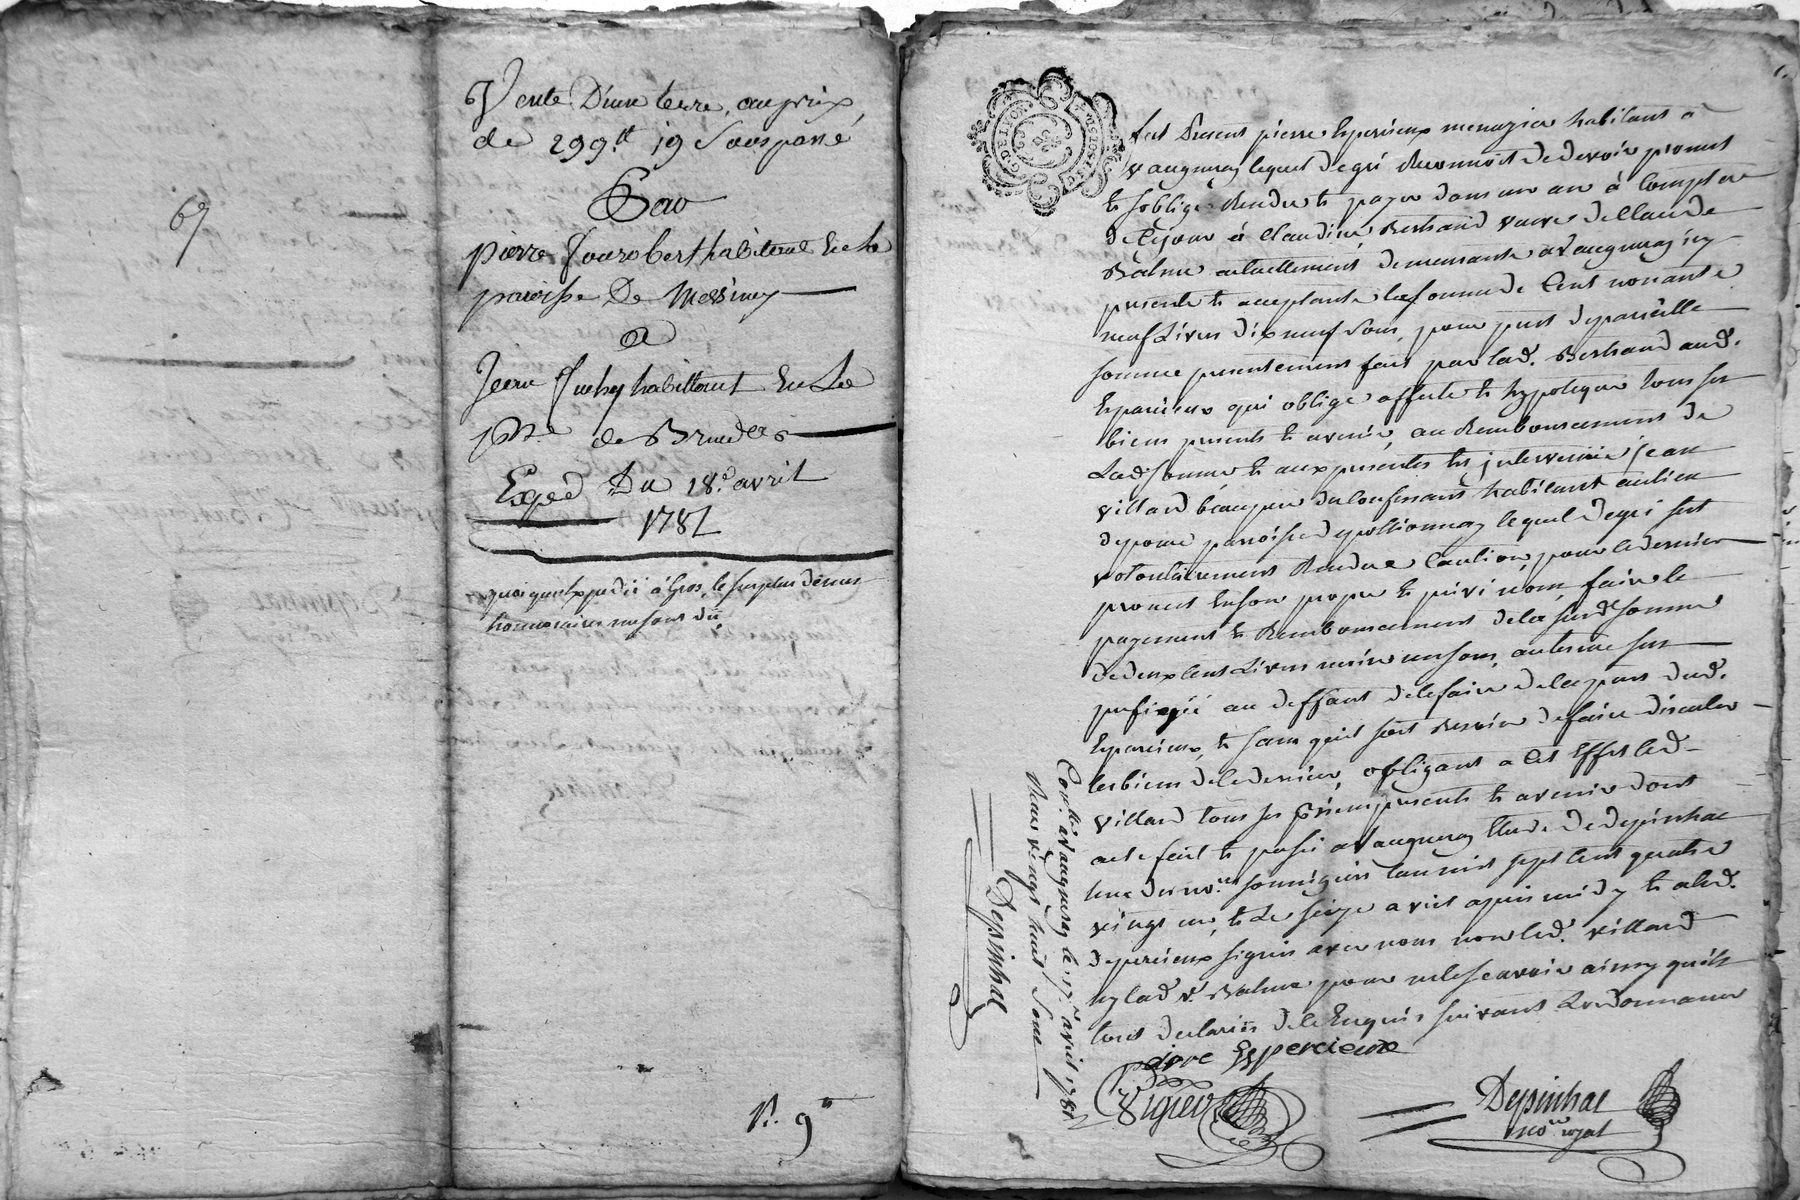 67
Vente D'une terre, au prix
de 299ᵗᵗ 19 Sous passé
Par
pierre Jourobert habitant En La
paroisse De Messimy
A
Jean habittant En La
psse de Brindas
Exped Du 18e. avril
1781
quoique Expedié à Gros, le surplus d'e mes
honnoraires me sont dû
N. 9
G. DE LYON
fut Present pierre Esparcieux menagier habitant à
vaugneray lequel de gré Reconnoit de devoir promet
et s'oblige Rendre et payer dans un an à Compter
de Ce jour à Claudine Bertrand veuve de Claude
Balme actuellement demeurante a vaugneray icy
presente et acceptante la somme de Cent nonante
neuf Livres dix neuf Sous, pour prest de pareille
somme presentement fait par lad. Bertrand aud.
Esparcieux qui oblige affecte et hypoteque tous ses
biens presents et avenir, au Remboursement de
Lad. somme Et aux presentes Est intervenu jean
villard beaupere du Confessant habitant au lieu
de paroisse de pollionnay lequel de gré s'est
volontairement Rendue Caution, pour le dernier
promet En son propre Et privé nom, faire le
payement Et Remboursement de la susd. somme
de deux Cent Livres moins un sous, au terme sus
prefixé au deffaut de le faire de la part dud.
Esparcieux, et sans qu'il soit Besoin de faire discuter
les biens de Ce dernier, obligeant a Cet Effet led.
villard tous ses Biens presents et avenir dont
acte fait et passé a vaugneray Etude de depinhac
l'un des nores. soussignés l'an mil sept Cent quatre
vingt un, et Le seize avril après midy et a led.
Esparcieux signé avec nous non led. villard
ny lad. ve. Balme pour ne le scavoir ainsy qu'ils
l'ont declaré de Ce Enquis suivant L'ordonnance
piere Espercieux
Vigier
Depinhac
nore royal
Conllé. a Vaugneray le 17e. avril 1781
Reçu vingt huit Sous
Depinhac